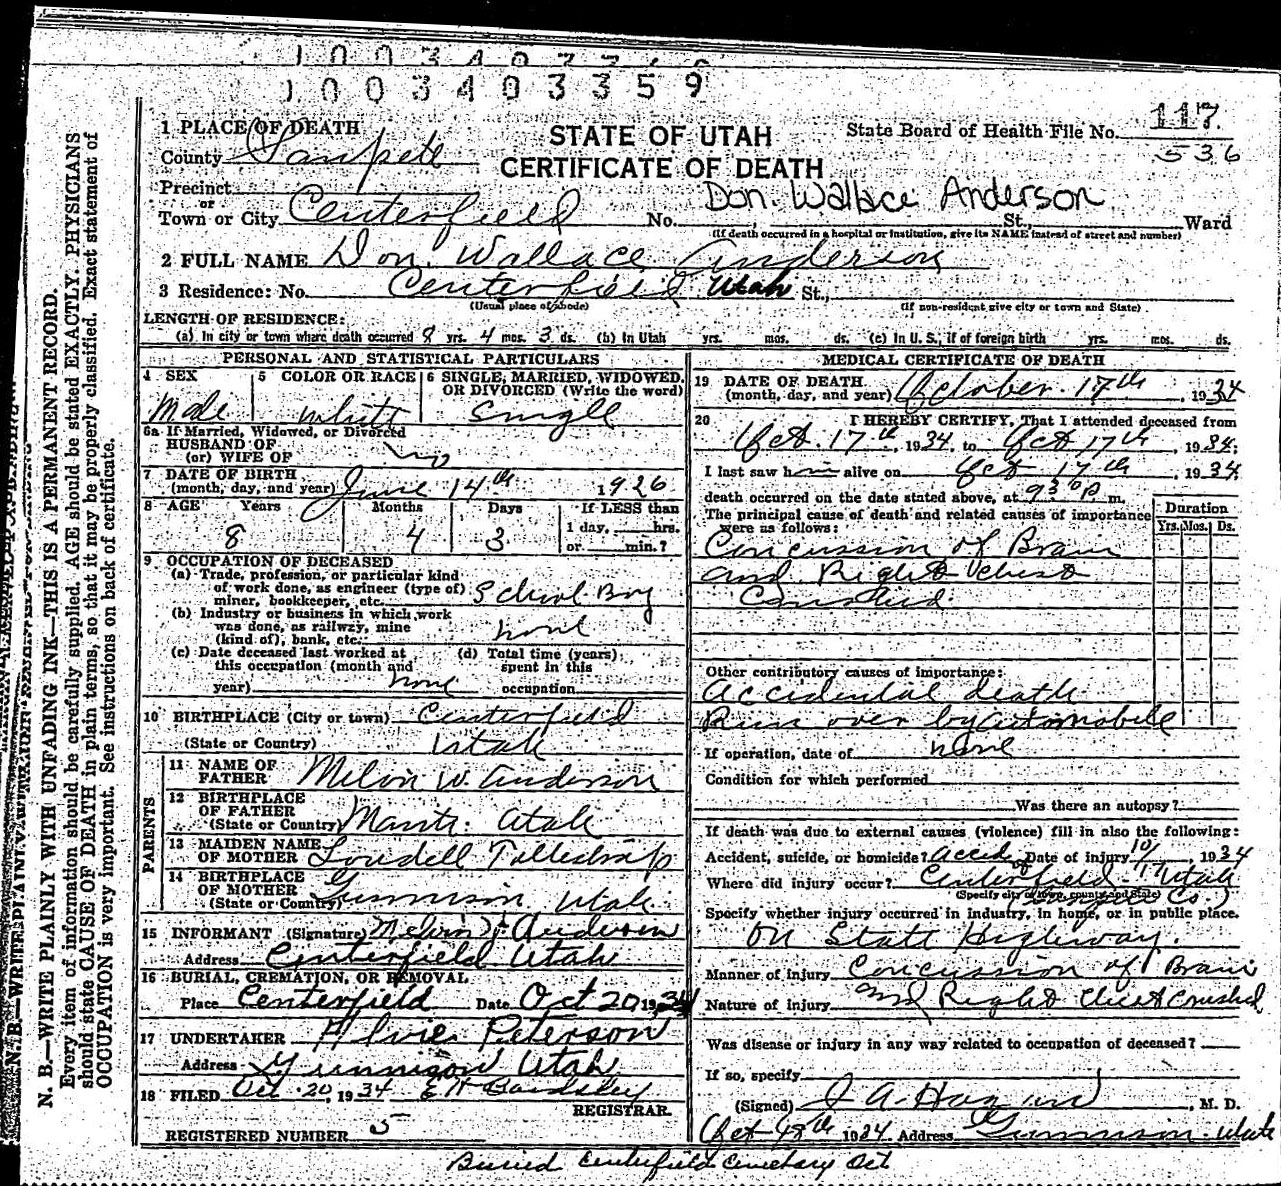 1003403359
117
536
STATE OF UTAH
CERTIFICATE OF DEATH
State Board of Health File No.
1 PLACE OF DEATH
County Sanpete
Precinct
or
Town or City Centerfield No. St., Ward
Don. Wallace Anderson
(If death occurred in a hospital or institution, give its NAME instead of street and number)
2 FULL NAME Don. Wallace Anderson
3 Residence: No. Centerfield Utah St.,
(Usual place of abode) (If non-resident give city or town and State)
LENGTH OF RESIDENCE:
(a) In city or town where death occurred 8 yrs. 4 mos. 3 ds. (b) In Utah yrs. mos. ds. (c) In U. S., if of foreign birth yrs. mos. ds.
PERSONAL AND STATISTICAL PARTICULARS
4 SEX
Male
5 COLOR OR RACE
white
6 SINGLE, MARRIED, WIDOWED,
OR DIVORCED (Write the word)
Single
6a If Married, Widowed, or Divorced
HUSBAND OF
(or) WIFE OF no
7 DATE OF BIRTH
(month, day, and year) June 14th 1926
8 AGE Years Months Days If LESS than
1 day, hrs.
or min.?
8 4 3
9 OCCUPATION OF DECEASED
(a) Trade, profession, or particular kind
of work done, as engineer (type of)
miner, bookkeeper, etc. School Boy
(b) Industry or business in which work
was done, as railway, mine
(kind of), bank, etc. none
(c) Date deceased last worked at
this occupation (month and
year) none
(d) Total time (years)
spent in this
occupation
10 BIRTHPLACE (City or town) Centerfield
(State or Country) Utah
PARENTS
11 NAME OF
FATHER Melvin W. Anderson
12 BIRTHPLACE
OF FATHER
(State or Country) Manti. Utah
13 MAIDEN NAME
OF MOTHER Loudell Tollestrup
14 BIRTHPLACE
OF MOTHER
(State or Country) Gunnison Utah
15 INFORMANT (Signature) Melvin W. Anderson
Address Centerfield Utah
16 BURIAL, CREMATION, OR REMOVAL
Place Centerfield Date Oct 20, 1934
17 UNDERTAKER Alvie Peterson
Address Gunnison Utah
18 FILED Oct. 20, 1934 E H Bardsley
REGISTRAR.
REGISTERED NUMBER 5
MEDICAL CERTIFICATE OF DEATH
19 DATE OF DEATH
(month, day, and year) October. 17th, 1934
20 I HEREBY CERTIFY, That I attended deceased from
Oct. 17th, 1934, to Oct 17th, 1934;
I last saw him alive on Oct 17th, 1934
death occurred on the date stated above, at 930 P. m.
The principal cause of death and related causes of importance
were as follows:
Duration
Yrs. Mos. Ds.
Concussion of Brain
and Right Chest
Crushed.
Other contributory causes of importance:
Accidental death
Run over by automobile
If operation, date of none
Condition for which performed
Was there an autopsy?
If death was due to external causes (violence) fill in also the following:
Accident, suicide, or homicide? Accid. Date of injury 10/17, 1934
Where did injury occur? Centerfield Utah
(Specify city or town, county, and State) (Sanpete Co.)
Specify whether injury occurred in industry, in home, or in public place.
On State Highway.
Manner of injury Concussion of Brain
Nature of injury and Right Chest Crushed
Was disease or injury in any way related to occupation of deceased?
If so, specify
(Signed) J A Hagan, M. D.
Oct 18th 1934 Address Gunnison. Utah
Buried Centerfield Cemetery Oct
N. B.—WRITE PLAINLY WITH UNFADING INK—THIS IS A PERMANENT RECORD.
Every item of information should be carefully supplied. AGE should be stated EXACTLY. PHYSICIANS
should state CAUSE OF DEATH in plain terms, so that it may be properly classified. Exact statement of
OCCUPATION is very important. See instructions on back of certificate.